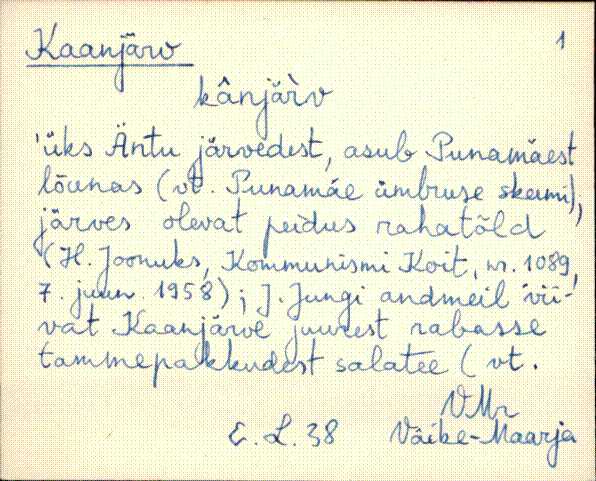 Kaanjärv 1
kânjä̀rv
'üks Äntu järvedest, asub Punamäest
lõunas (vt. Punamäe ümbruse skeemi),
järves olevat peidus rahatõld
(H. Joonuks, Kommunismi Koit, nr. 1089,
7. juun. 1958); J. Jungi andmeil 'vii-
vat Kaanjärve juurest rabasse
tammepakkudest salatee ( vt.
VMr
E. L. 38 Väike-Maarja